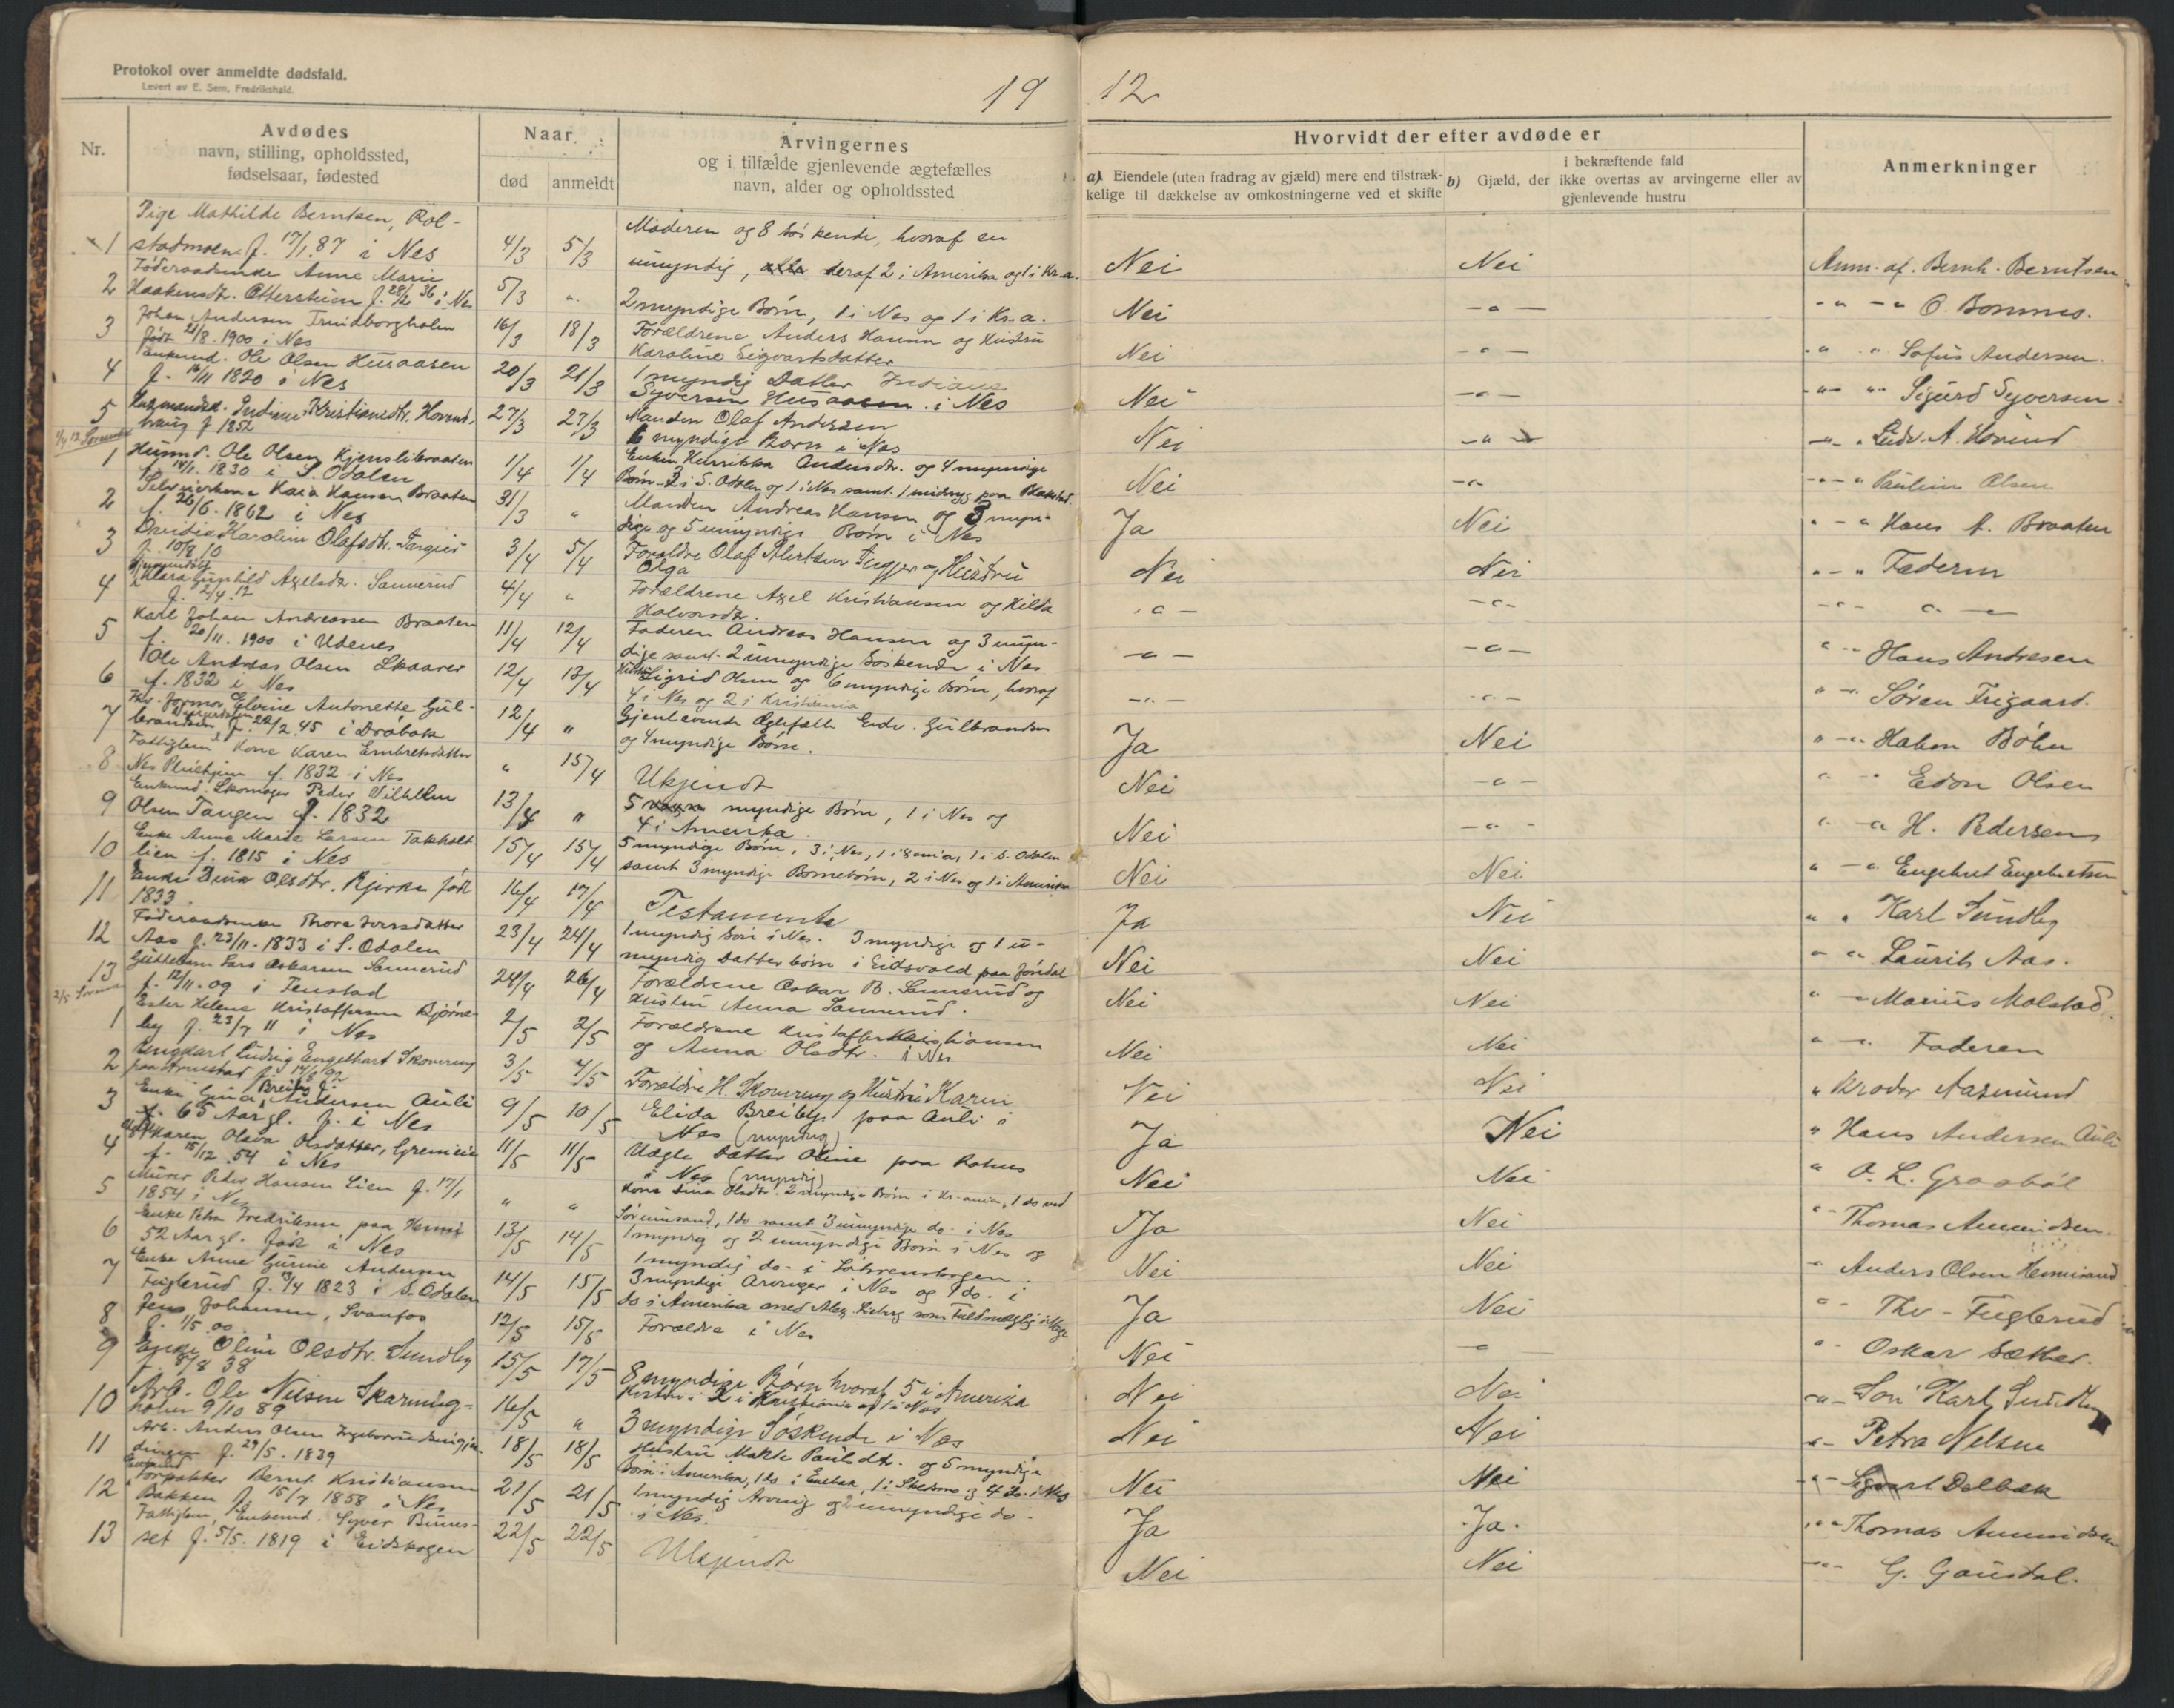 Protokol over anmeldte dødsfald.
Levert av E. Sem, Fredrikshald.
19 12
Nr.
Avdødes
navn, stilling, opholdssted,
fødselsaar, fødested
Naar
død anmeldt
Arvingernes
og i tilfælde gjenlevende ægtefælles
navn, alder og opholdssted
Hvorvidt der efter avdøde er
a) Eiendele (uten fradrag av gjæld) mere end tilstræk-
kelige til dækkelse av omkostningerne ved et skifte
i bekræftende fald
b) Gjæld, der ikke overtas av arvingerne eller av
gjenlevende hustru
Anmerkninger
Pige Mathilde Berntsen, Rol-
1 stadmoen f. 17/1.87 i Nes 4/3 5/3
Moderen og 8 Søskende, hvoraf en
umyndig, deraf 2 i Amerika og 1 i Kr.a.
Nei Nei Anm. af. Bernh. Berntsen
Føderaadsenke Anne Marie
2 Haakensdtr. Ottersteien f. 28/2 36 i Nes 5/3 "
2 myndige Børn, 1 i Nes og 1 i Kr.a.
Nei - " - - " - " O. Bommes.
3 Johan Andersen Trundborgholm
født 21/8.1900 i Nes 16/3 18/3
Forældrene Anders Hansen og Hustru
Karoline Sigvartsdatter
Nei - " - " " Sofus Andersen.
4 Enkemd. Ole Olsen Husaasen
f. 16/11 1820 i Nes 20/3 21/3
1 myndig Datter Indiane
Syversen Husaasen i Nes
Nei - " - " " Sigurd Syversen.
5 Husmandsk. Indiane Kristiansdtr. Hovind-
haug f 1852 27/3 27/3
Manden Olaf Andersen
6 myndige Børn i Nes
Nei - " - - " Ludv. A. Hovind
1 Husmd. Ole Olsen Kjenslibraaten
f. 14/11. 1830 i S. Odalen 1/4 1/4
Enken Henrikka Andersdtr. og 4 myndige
Børn - 2 i S. Odalen og 1 i Nes samt 1 umdng paa Blakstad
Nei - " - - " - " Pauline Olsen
2 Selveierkone Kaia Hansen Braaten
f. 26/6. 1862 i Nes 31/3 "
Manden Andreas Hansen og 3 myn-
dige og 5 umyndige Børn i Nes
Ja Nei " - " Hans A. Braaten
3 Ovidia Karoline Olafsdtr. Fargier
f. 10/8 10 3/4 5/4
Forældre Olaf Albertsen Fugger og Hustru
Olga
Nei Nei " - " Faderen
4 Klara Gunhild Axelsdtr. Sannerud
f. 2/4.12 4/4 "
Forældrene Axel Kristiansen og Hilda
Halvorsdtr.
- " - - " - - " - " -
5 Karl Johan Andreassen Braaten
f. 20/11. 1900 i Udenes 11/4 12/4
Faderen Andreas Hansen og 3 myn-
dige samt 2 umyndige Søskende i Nes
- " - - " - " - Hans Andresen
6 Ole Andreas Olsen Skaarer
f. 1832 i Nes 12/4 13/4
Hustru Sigrid Olsen og 6 myndige Børn, hvoraf
4 i Nes og 2 i Kristiania
- " - - " - " - Søren Frigaard.
7 Elvine Antonette Gul-
brandsen f. 22/2.45 i Drøbak 12/4 "
Gjenlevende Ægtefælle Edv. Gulbrandsen
og 4 myndige Børn.
Ja Nei " - " Hakon Bøhn
Fattiglem Kone Karen Embretsdatter
8 Nes Pleiehjem f. 1832 i Nes " 15/4
Ukjendt
Nei - " - " " Edon Olsen
9 Enkemd. Skomager Peder Tilhelm
Olsen Tangen f. 1832 13/4 "
5 myndige Børn, 1 i Nes og
4 i Amerika.
Nei - " - " - " H. Pedersen
10 Enke Anne Marie Larsen Takholt
lien f. 1815 i Nes 15/4 15/4
5 myndige Børn, 3 i Nes, 1 i 8ania, 1 i S. Odalen
samt 3 myndige Børnebørn, 2 i Nes og 1 i Amerika
Nei Nei " - " Engebret Engebretsen
11 Enke Dina Olsdtr. Bjerke født
1833 16/4 17/4
Testamente
Ja Nei " " Karl Sundby
Føderaadsenke Thora Iversdatter
12 Aas f. 23/11 - 1833 i S. Odalen 23/4 24/4
1 myndig Søn i Nes. 3 myndige og 1 u-
myndig Datterbørn i Eidsvold paa Jøndal
Nei Nei " - " Laurits Aas.
13 Guttebarn Lars Oskarsen Sannerud
f. 12/11.09 i Tenstad 24/4 26/4
Forældrene Oskar B. Sannerud og
Hustru Anna Sannerud.
Nei Nei " - Marius Molstad.
1 Ester Helene Kristoffersen Bjørne-
by f. 23/7 11 i Nes 2/5 2/5
Forældrene Kristoffer Kristiansen
og Anna Olsdtr. i Nes
Nei Nei " - " Faderen
2 Ungkarl Ludvig Engelhart Skovreng
paa Armestad f. 14/6 92 3/5 7/5
Forældre H. Skovreng og Hustru Karen
Nei Nei " Kroder Aasmund
3 Enke Gina Andersen Auli
f. 65 Aar gl. f. i Nes 9/5 10/5
Elida Breiby paa Auli i
Nes (myndig)
Ja Nei " Hans Andersen Auli
4 Karen Olava Olsdatter, Gremieie
f. 15/12.54 i Nes 11/5 11/5
Uægte Datter Oline paa Rotnes
i Nes (myndig)
Nei Nei " O. L. Graabøl
5 Murer Peder Hansen Lien f. 17/1
1854 i Nes " "
Kone Lina Olsdtr. 2 myndige Børn i Kr-ania, 1 do ved
Sørumsand, 1 do samt 3 umyndige do. i Nes
Ja Nei " - Thomas Amundsen.
6 Enke Petra Fredriksen paa Hemni
52 Aar gl. født i Nes 13/5 14/5
1 myndig og 2 umyndige Børn i Nes og
1 myndig do. i Løhrenskogen.
Nei Nei " Anders Olsen Hemisand
7 Enke Anne Gurine Andersen
Fuglerud f. 13/4 1823 i S. Odalen 14/5 15/5
3 myndige Arvinger i Nes og 1 do. i
do i Amerika med Alex. Lieberg som Fuldmægtig i Norge
Ja Nei " - Thv - Fuglerud
8 Jens Johansen, Svanfos
f. 1/5.00 12/5 15/5
Forældre i Nes
Nei - " - " - Oskar Sæther.
9 Enke Oline Olsdtr. Sundby
f. 8/8 38 15/5 17/5
8 myndige Børn hvoraf 5 i Amerika
2 i Kristiania og 1 i Nes
Nei Nei - " - Søn Karl Sundby
10 Arb. Ole Nilsen Skarning-
holen 9/10 89 16/5 "
3 myndige Søskende i Nes
Nei Nei - " - Petra Nelsen
11 Arb. Anders Olsen
f. 29/5. 1839 18/5 18/5
Hustru Marte Paulsdtr. og 5 myndige
Børn i Amerika, 1 do i Enebak, 1 i Skedsmo og 4 do. i Nes
Nei Nei - " - Sigvart Dolbak
12 Enkemd Forpakter Bernt Kristiansen
Bakken f. 15/7 1858 i Nes 21/5 21/5
1 myndig Arving og 2 umyndige do.
i Nes.
Ja Ja. " " Thomas Amundsen
Fattiglem, Enkemd. Syver Bunes-
13 set f. 5/5. 1819 i Eidskogen 22/5 22/5
Ukjendt
Nei Nei - " - G. Goustal.